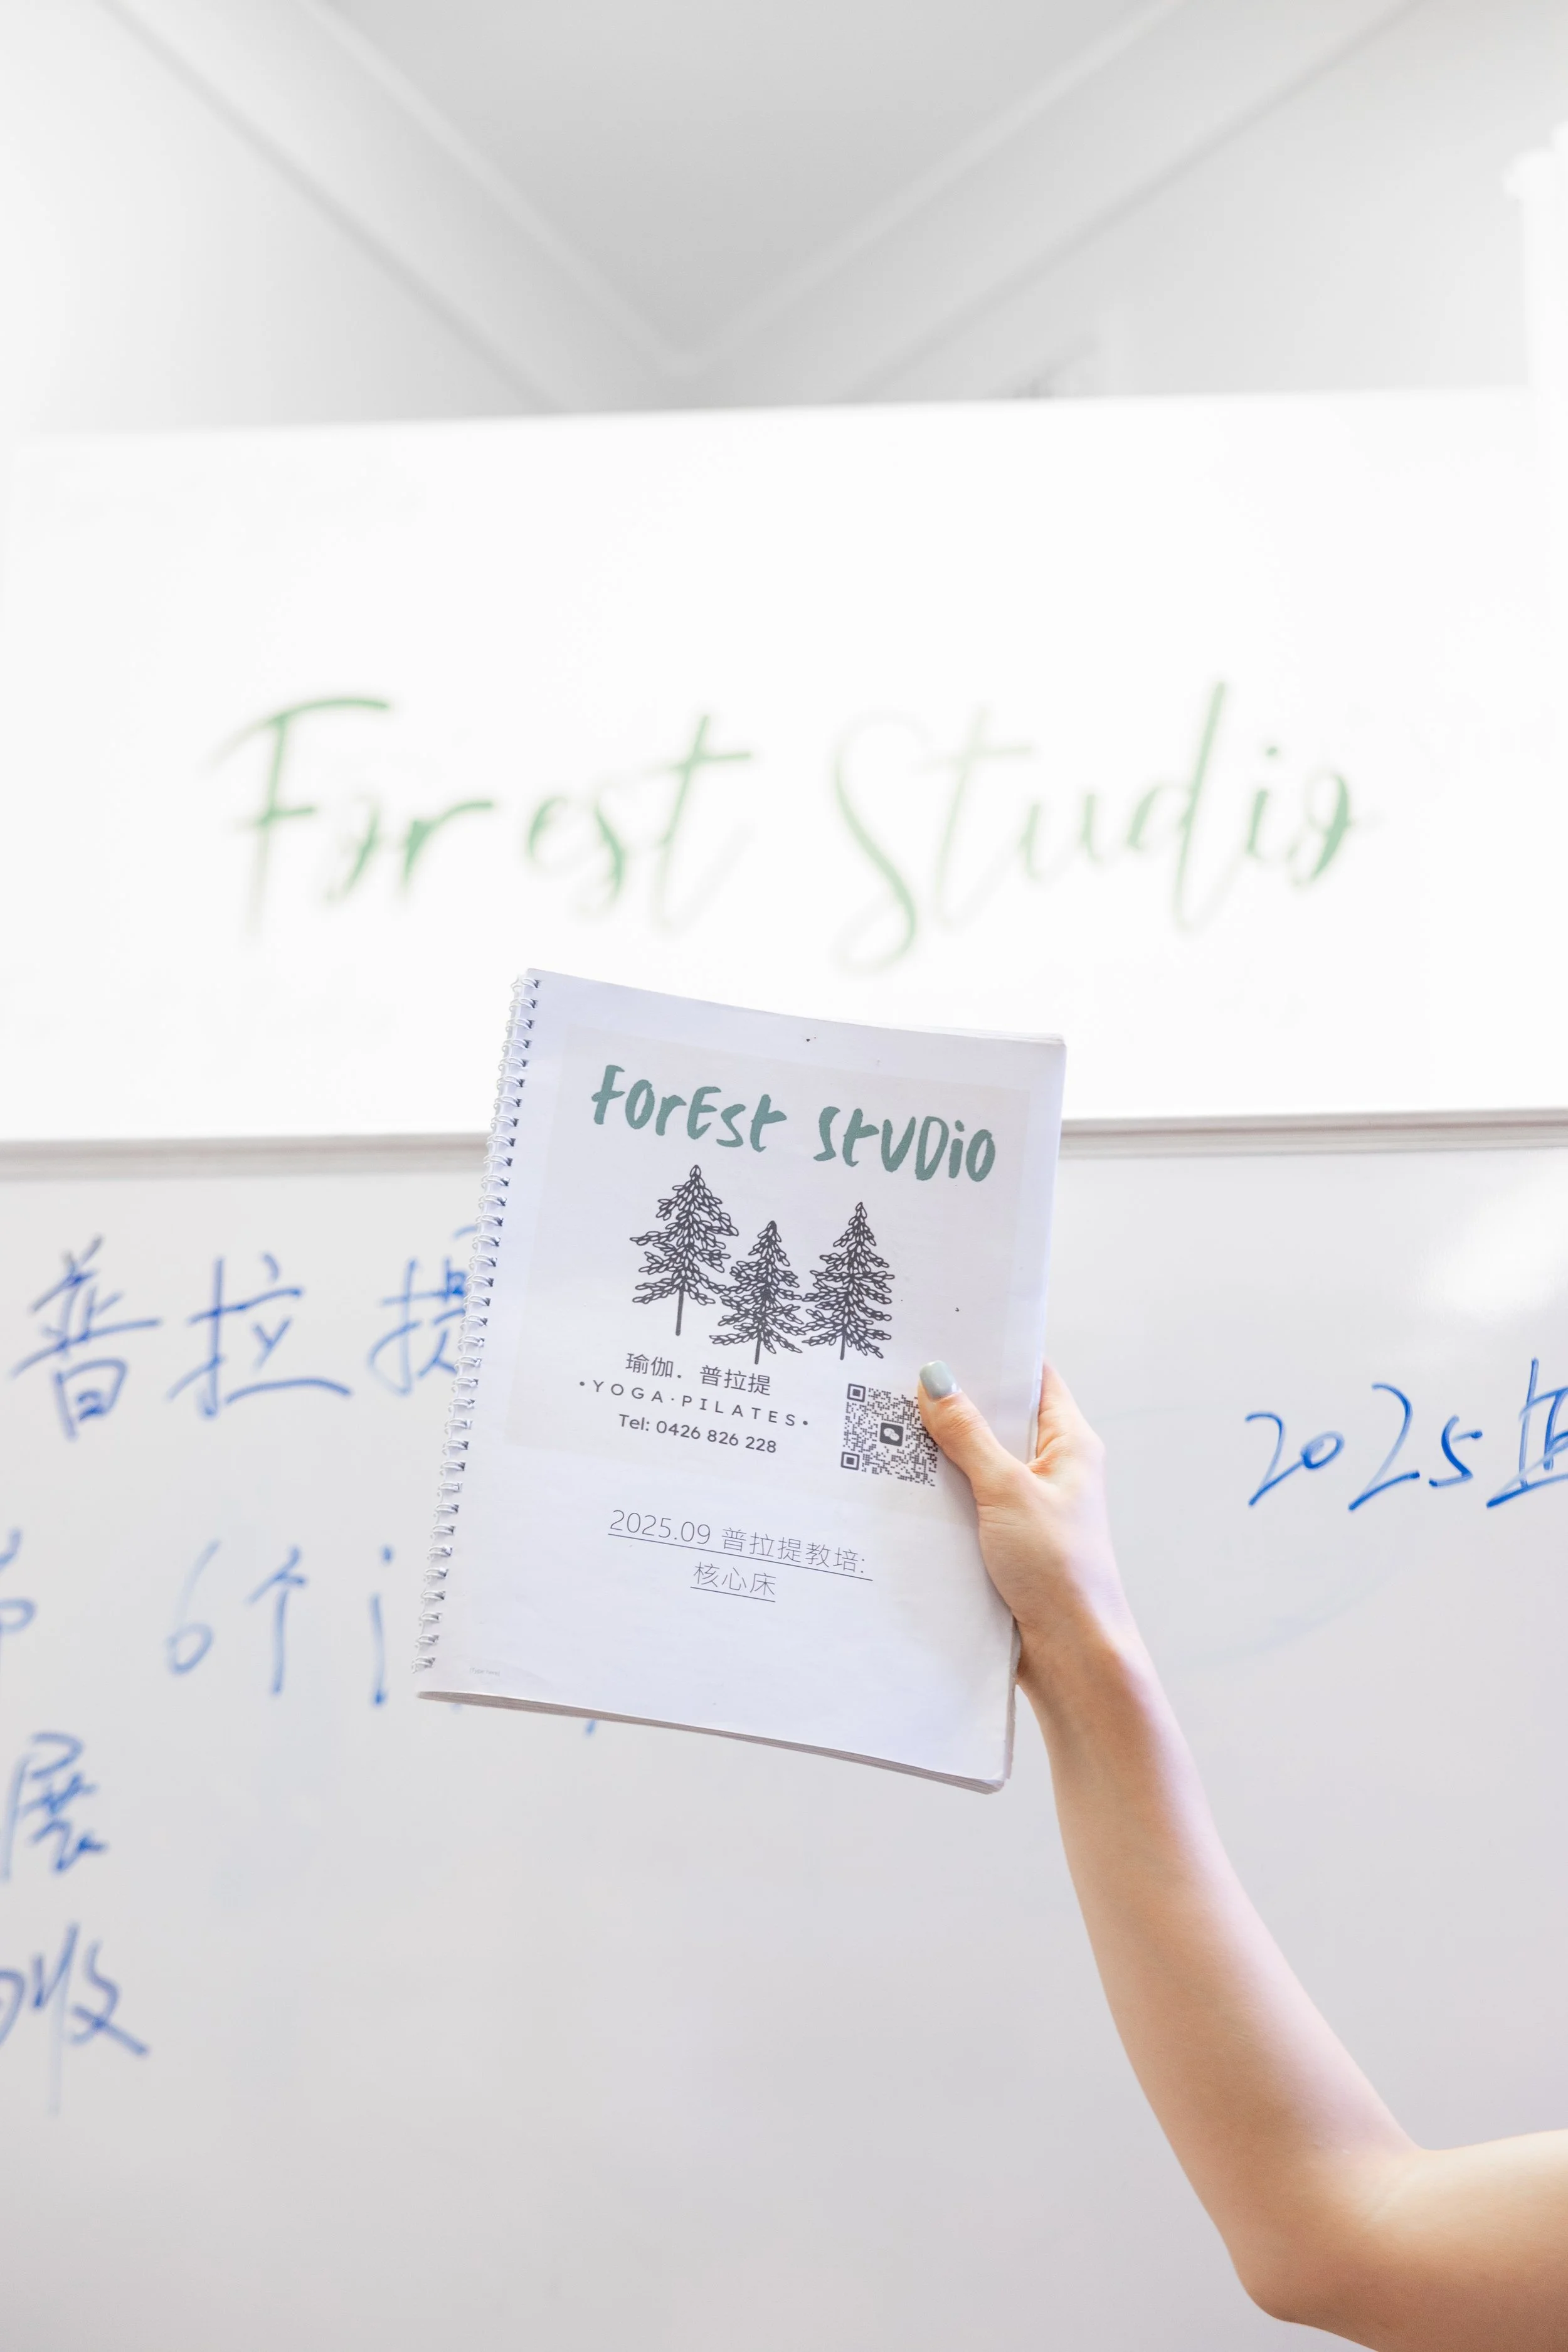 Forest Studio
ForEst StUDio
瑜伽. 普拉提
•YOGA·PILATES•
Tel: 0426 826 228
2025.09 普拉提教培:
核心床
普拉提
2025
6个
展
收